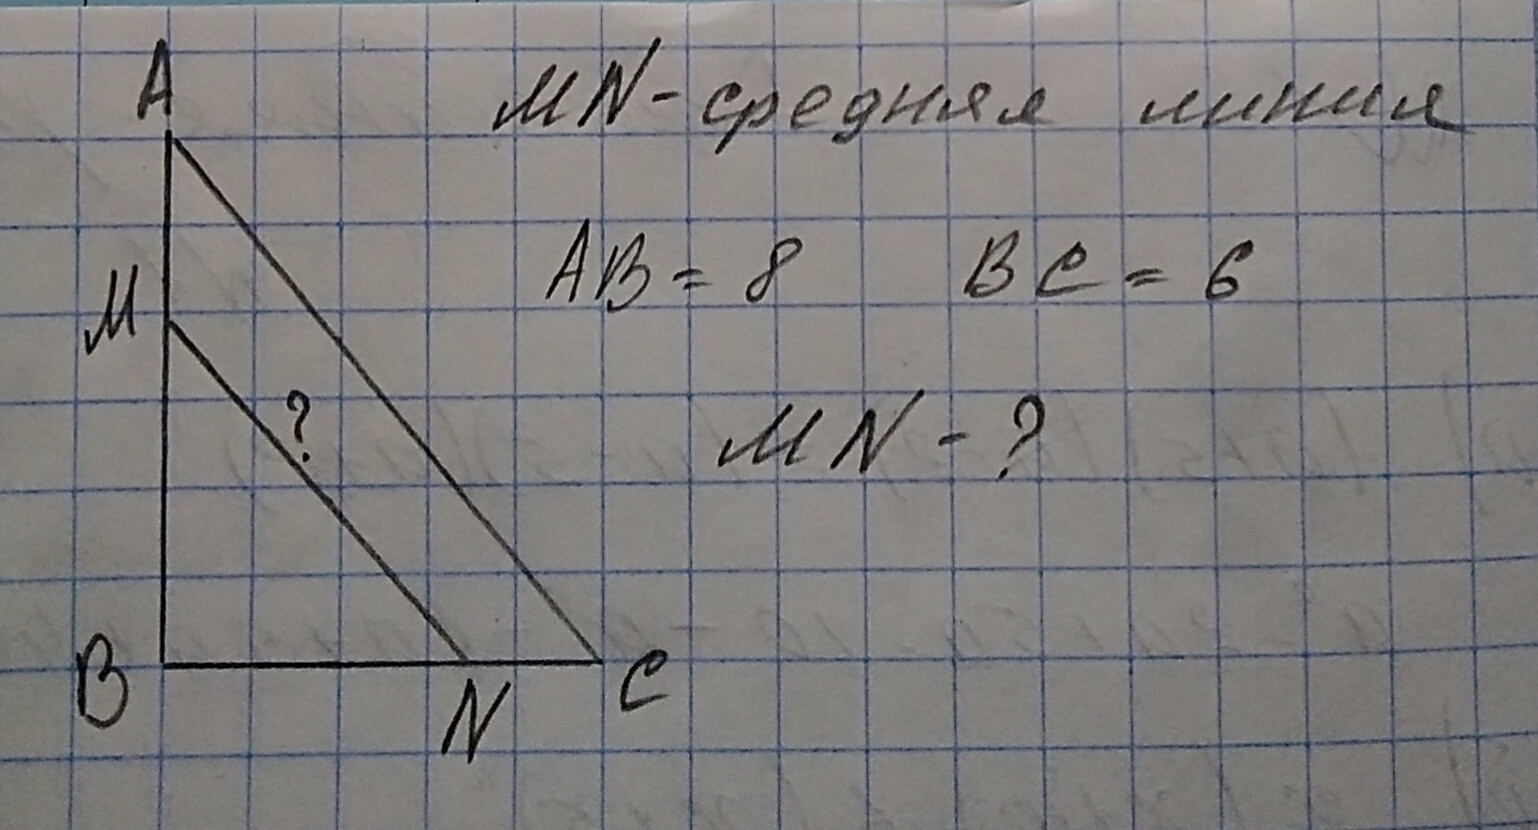 A
MN - средняя линия
AB = 8 BC = 6
M
?
MN - ?
B
N
C